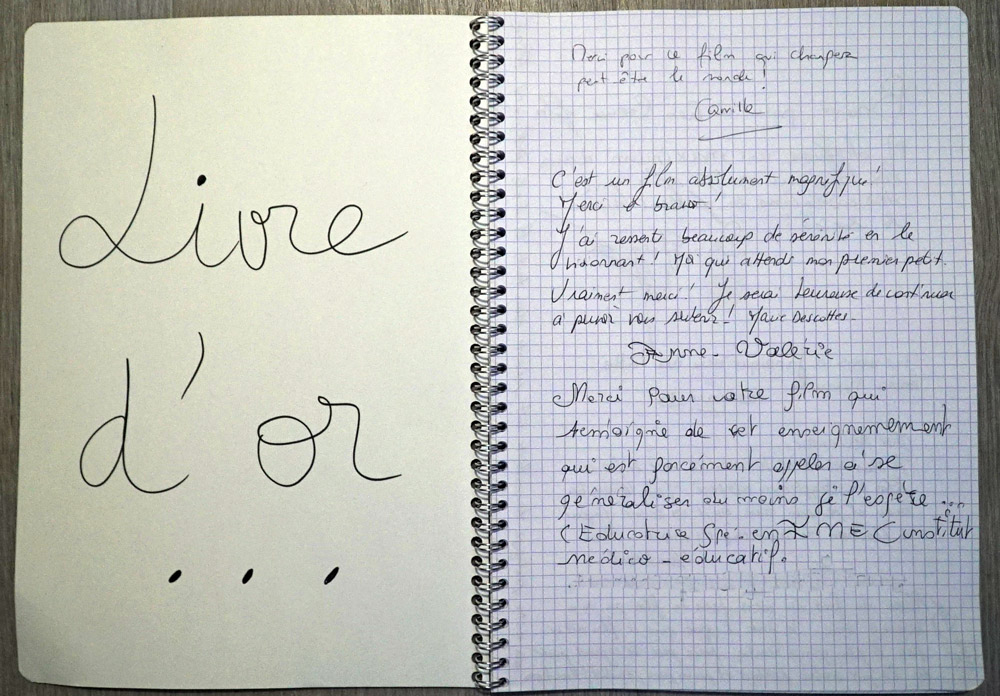 Livre
d'or
...
Merci pour ce film qui changera
peut être le monde !
Camille
C'est un film absolument magnifique !
Merci et bravo !
J'ai ressenti beaucoup de sérénité en le
visionnant ! Moi qui attends mon premier petit.
Vraiment merci ! Je serai heureuse de continuer
à pouvoir vous suivre ! Descottes.
Anne-Valérie
Merci pour votre film qui
témoigne de cet enseignemement
qui est forcément appeler à se
généraliser du moins je l'espère ...
(Educatrice Spé. en IME (institut
médico-éducatif.